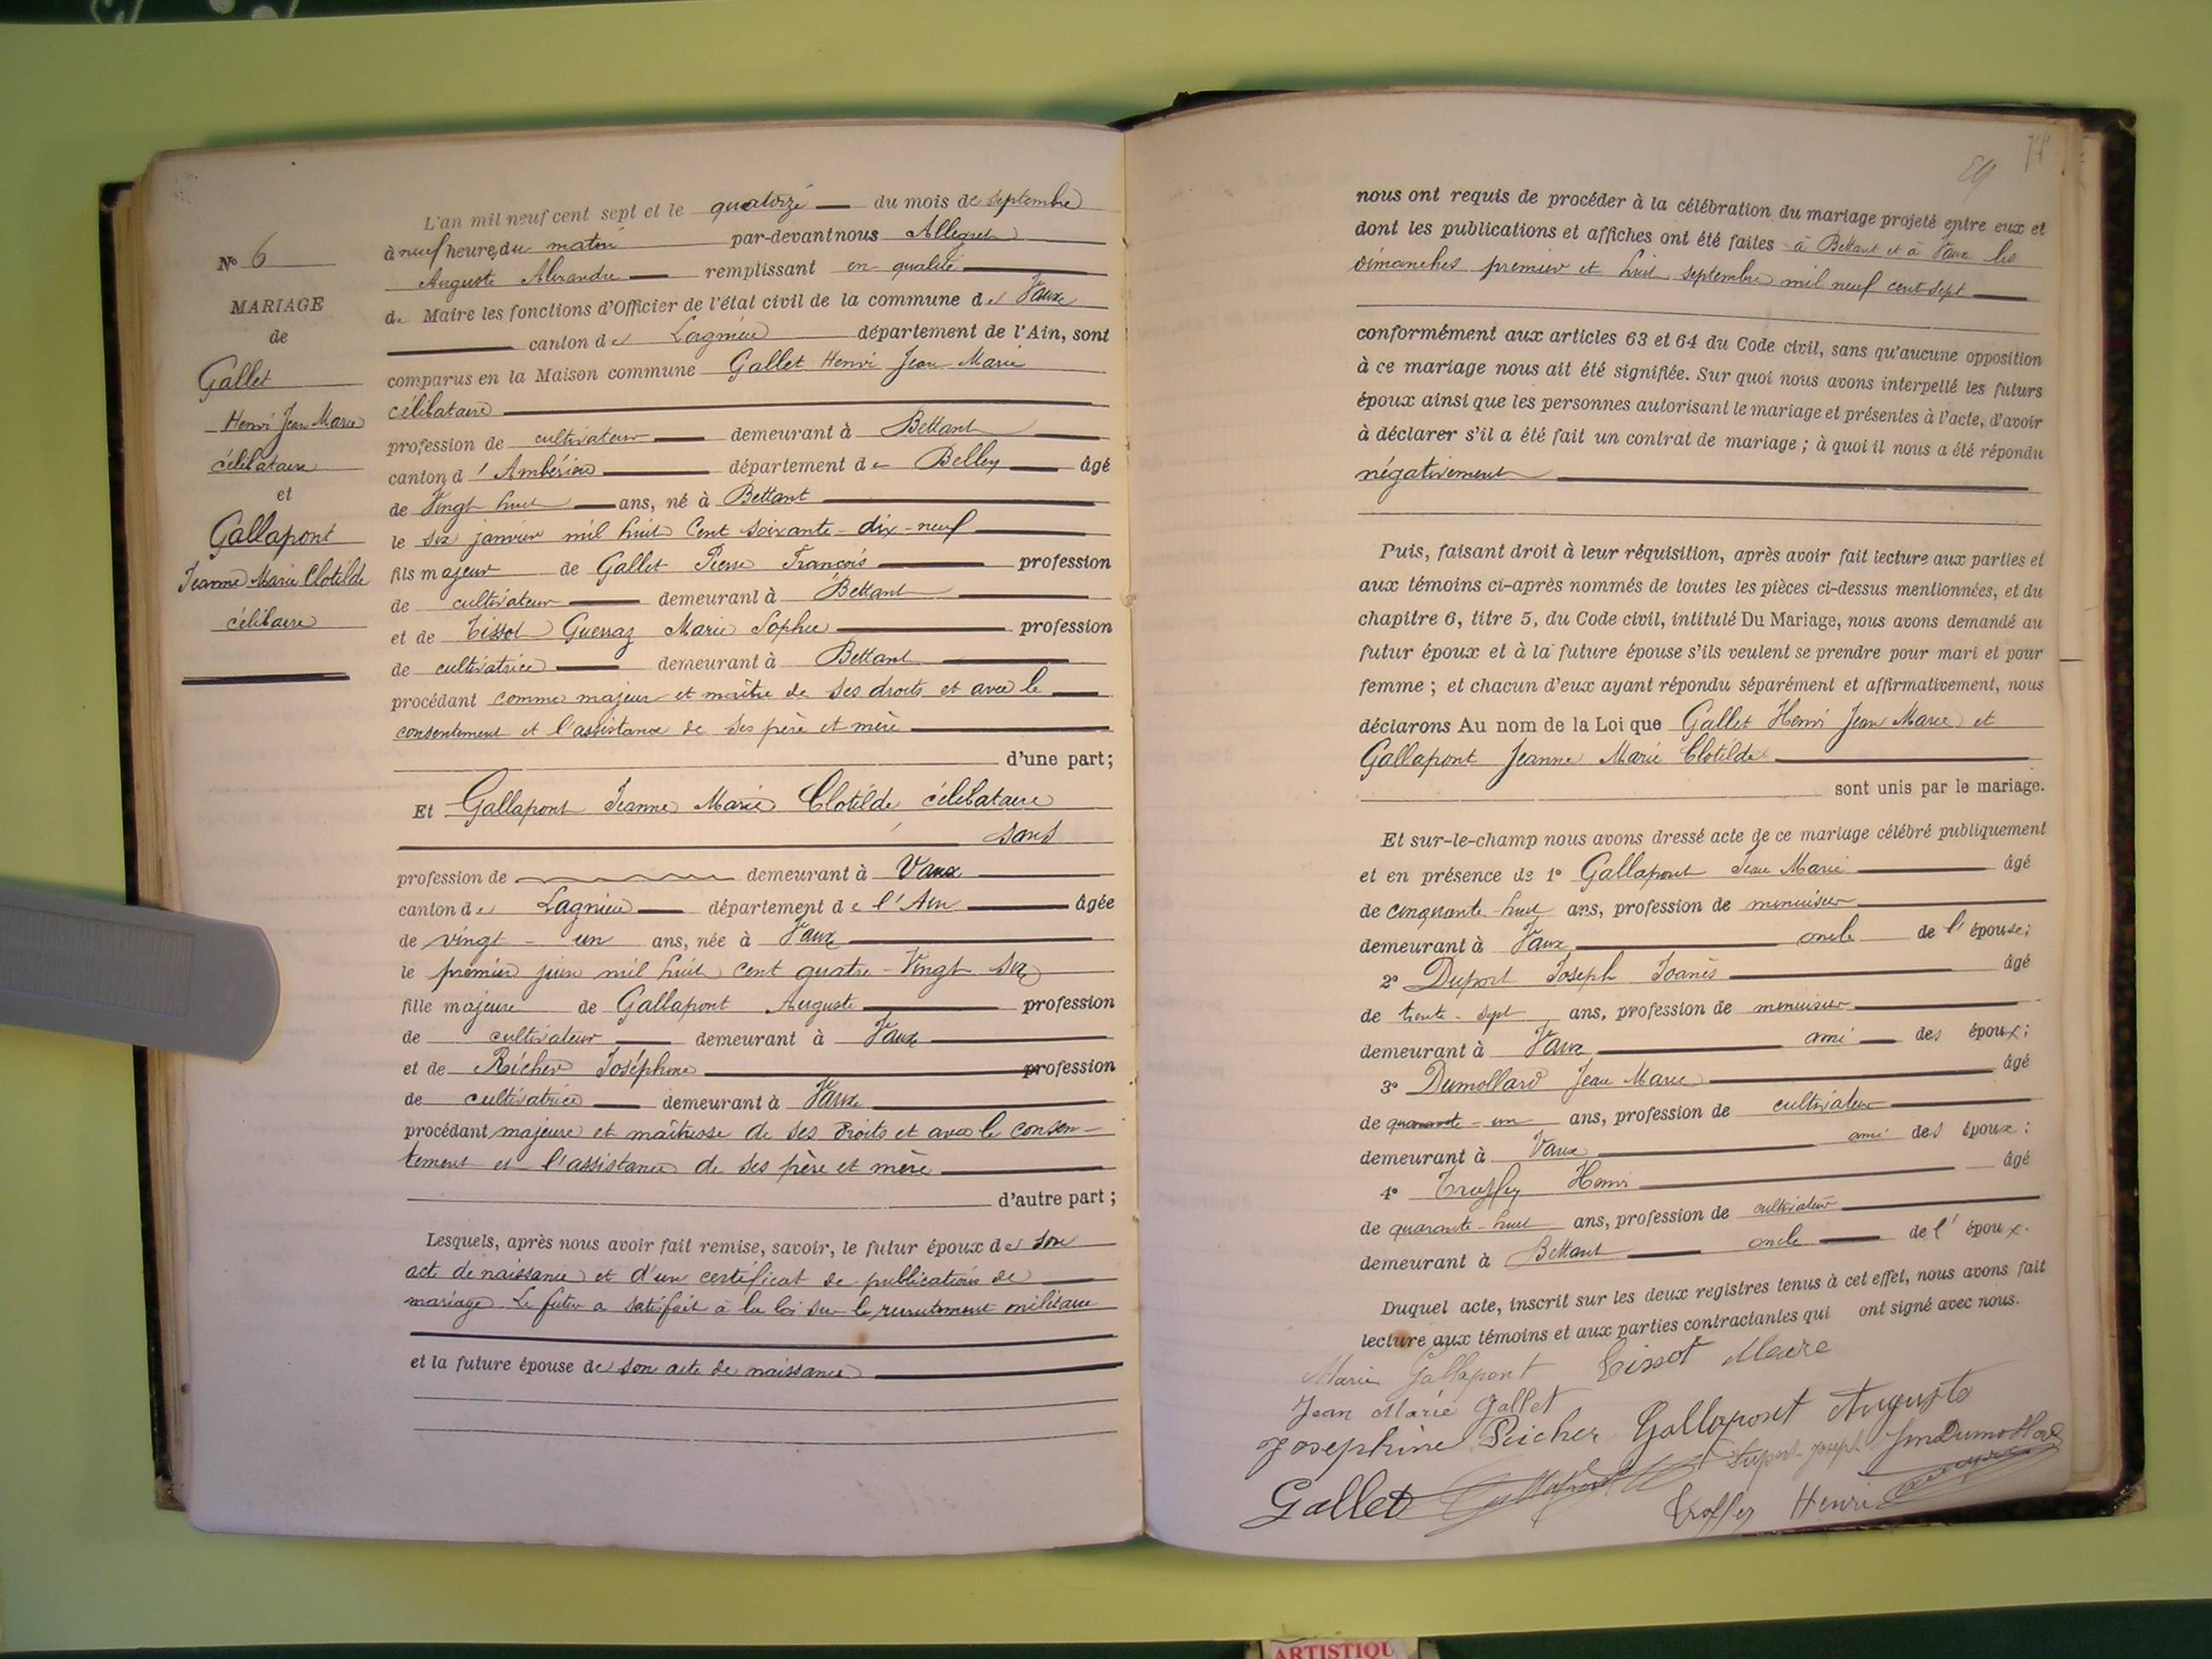 N° 6
MARIAGE
de
Gallet
Henri Jean Marie
célibataire
et
Gallapont
Jeanne Marie Clotilde
célibaire
L'an mil neuf cent sept et le quatorze du mois de septembre
à neuf heures du matin par-devant nous Allégret
Auguste Alexandre remplissant en qualité
de Maire les fonctions d'Officier de l'état civil de la commune de Vaux
canton de Lagnieu département de l'Ain, sont
comparus en la Maison commune Gallet Henri Jean Marie
célibataire
profession de cultivateur demeurant à Bettant
canton d'Ambérieu département de Belley âgé
de Vingt huit ans, né à Bettant
le six janvier mil huit Cent soixante-dix-neuf
fils majeur de Gallet Pierre François profession
de cultivateur demeurant à Bettant
et de Tissot Guerraz Marie Sophie profession
de cultivatrice demeurant à Bettant
procédant comme majeur et maître de ses droits et avec le
consentement et l'assistance de ses père et mère
d'une part;
Et Gallapont Jeanne Marie Clotilde célibataire
sans
profession de demeurant à Vaux
canton de Lagnieu département de l'Ain âgée
de vingt-un ans, née à Vaux
le premier juin mil huit cent quatre-Vingt six
fille majeure de Gallapont Auguste profession
de cultivateur demeurant à Vaux
et de Richer Joséphine profession
de cultivatrice demeurant à Vaux
procédant majeure et maîtresse de ses droits et avec le consen-
tement et l'assistance de ses père et mère
d'autre part;
Lesquels, après nous avoir fait remise, savoir, le futur époux de son
acte de naissance et d'un certificat de publications de
mariage. Le futur a satisfait à la loi sur le recrutement militaire
et la future épouse de son acte de naissance
nous ont requis de procéder à la célébration du mariage projeté entre eux et
dont les publications et affiches ont été faites à Bettant et à Vaux les
dimanches premier et huit septembre mil neuf cent sept
conformément aux articles 63 et 64 du Code civil, sans qu'aucune opposition
à ce mariage nous ait été signifiée. Sur quoi nous avons interpellé les futurs
époux ainsi que les personnes autorisant le mariage et présentes à l'acte, d'avoir
à déclarer s'il a été fait un contrat de mariage; à quoi il nous a été répondu
négativement
Puis, faisant droit à leur réquisition, après avoir fait lecture aux parties et
aux témoins ci-après nommés de toutes les pièces ci-dessus mentionnées, et du
chapitre 6, titre 5, du Code civil, intitulé Du Mariage, nous avons demandé au
futur époux et à la future épouse s'ils veulent se prendre pour mari et pour
femme; et chacun d'eux ayant répondu séparément et affirmativement, nous
déclarons Au nom de la Loi que Gallet Henri Jean Marie et
Gallapont Jeanne Marie Clotilde
sont unis par le mariage.
Et sur-le-champ nous avons dressé acte de ce mariage célébré publiquement
et en présence de 1° Gallapont Jean Marie âgé
de cinquante-huit ans, profession de menuisier
demeurant à Vaux oncle de l'épouse;
2° Duport Joseph Joanès âgé
de trente-sept ans, profession de menuisier
demeurant à Vaux ami des époux;
3° Dumollard Jean Marie âgé
de quarante-un ans, profession de cultivateur
demeurant à Vaux ami des époux:
4° Truffey Henri âgé
de quarante-huit ans, profession de cultivateur
demeurant à Bettant oncle de l'époux.
Duquel acte, inscrit sur les deux registres tenus à cet effet, nous avons fait
lecture aux témoins et aux parties contractantes qui ont signé avec nous.
Marie Gallapont Tissot Marie
Jean Marie Gallet
Josephine Richer Gallapont Auguste
Gallet Gallapont Duport Joseph Jm Dumollard
Troffey Henri
ARTISTIQU